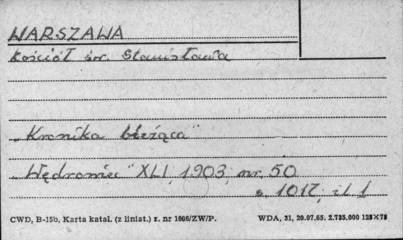 WARSZAWA
Kościół św. Stanisława
„Kronika bieżąca"
„Wędrowiec" XLI, 1903, nr. 50
s. 1017, il. 1
CWD, B-15b, Karta katal. (z liniat.) z. nr 1606/ZW/P. WDA, 31, 20.07.65. 2.725.000 125X75